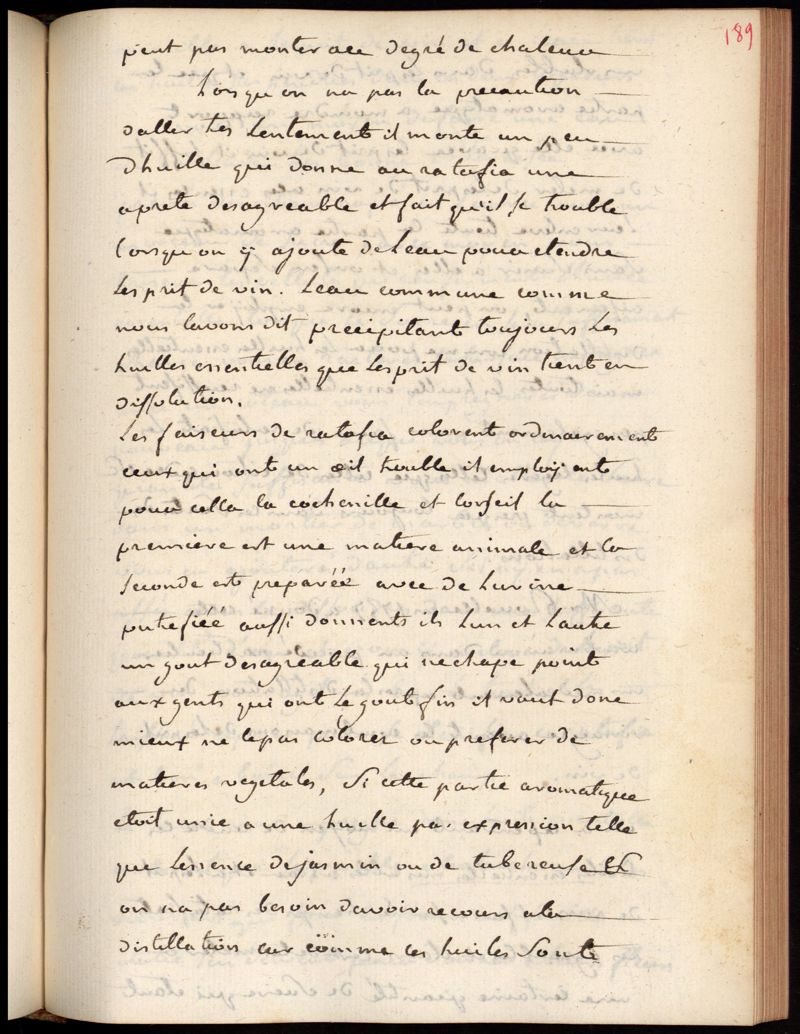 189
peut pas monter a ce degré de chaleur
Lorsqu on na pas la precaution
daller tes Lentement il monte un peu
dhuille qui donne au ratafia une
aprete desagreable et fait qu'il se trouble
lorsqu on y ajoute de Leau pour etendre
Lesprit de vin. Leau commune comme
nous lavons dit precipitant toujours Les
huilles essentielles que Lesprit de vin tient en
dissolution.
Les faiseurs de ratafia colorent ordinairement
ceux qui ont un œil trouble il employ ent
pour cella la cochenille et lorseil la
premiere est une matiere animale et la
seconde est preparéé avec de Lurine
putrefiéé aussi donnent ils Lun et Lautre
un gout desagreable qui nechape point
aux gents qui ont Le gout fin il vaut donc
mieux ne le pas colorer ou preferer de
matieres vegetales, Si cette partie aromatique
etoit unie a une huille par expression telle
que Lessence de jasmin ou de tubereuse &
on na pas besoin davoir recours a la
distillation car comme ces huiles Sont